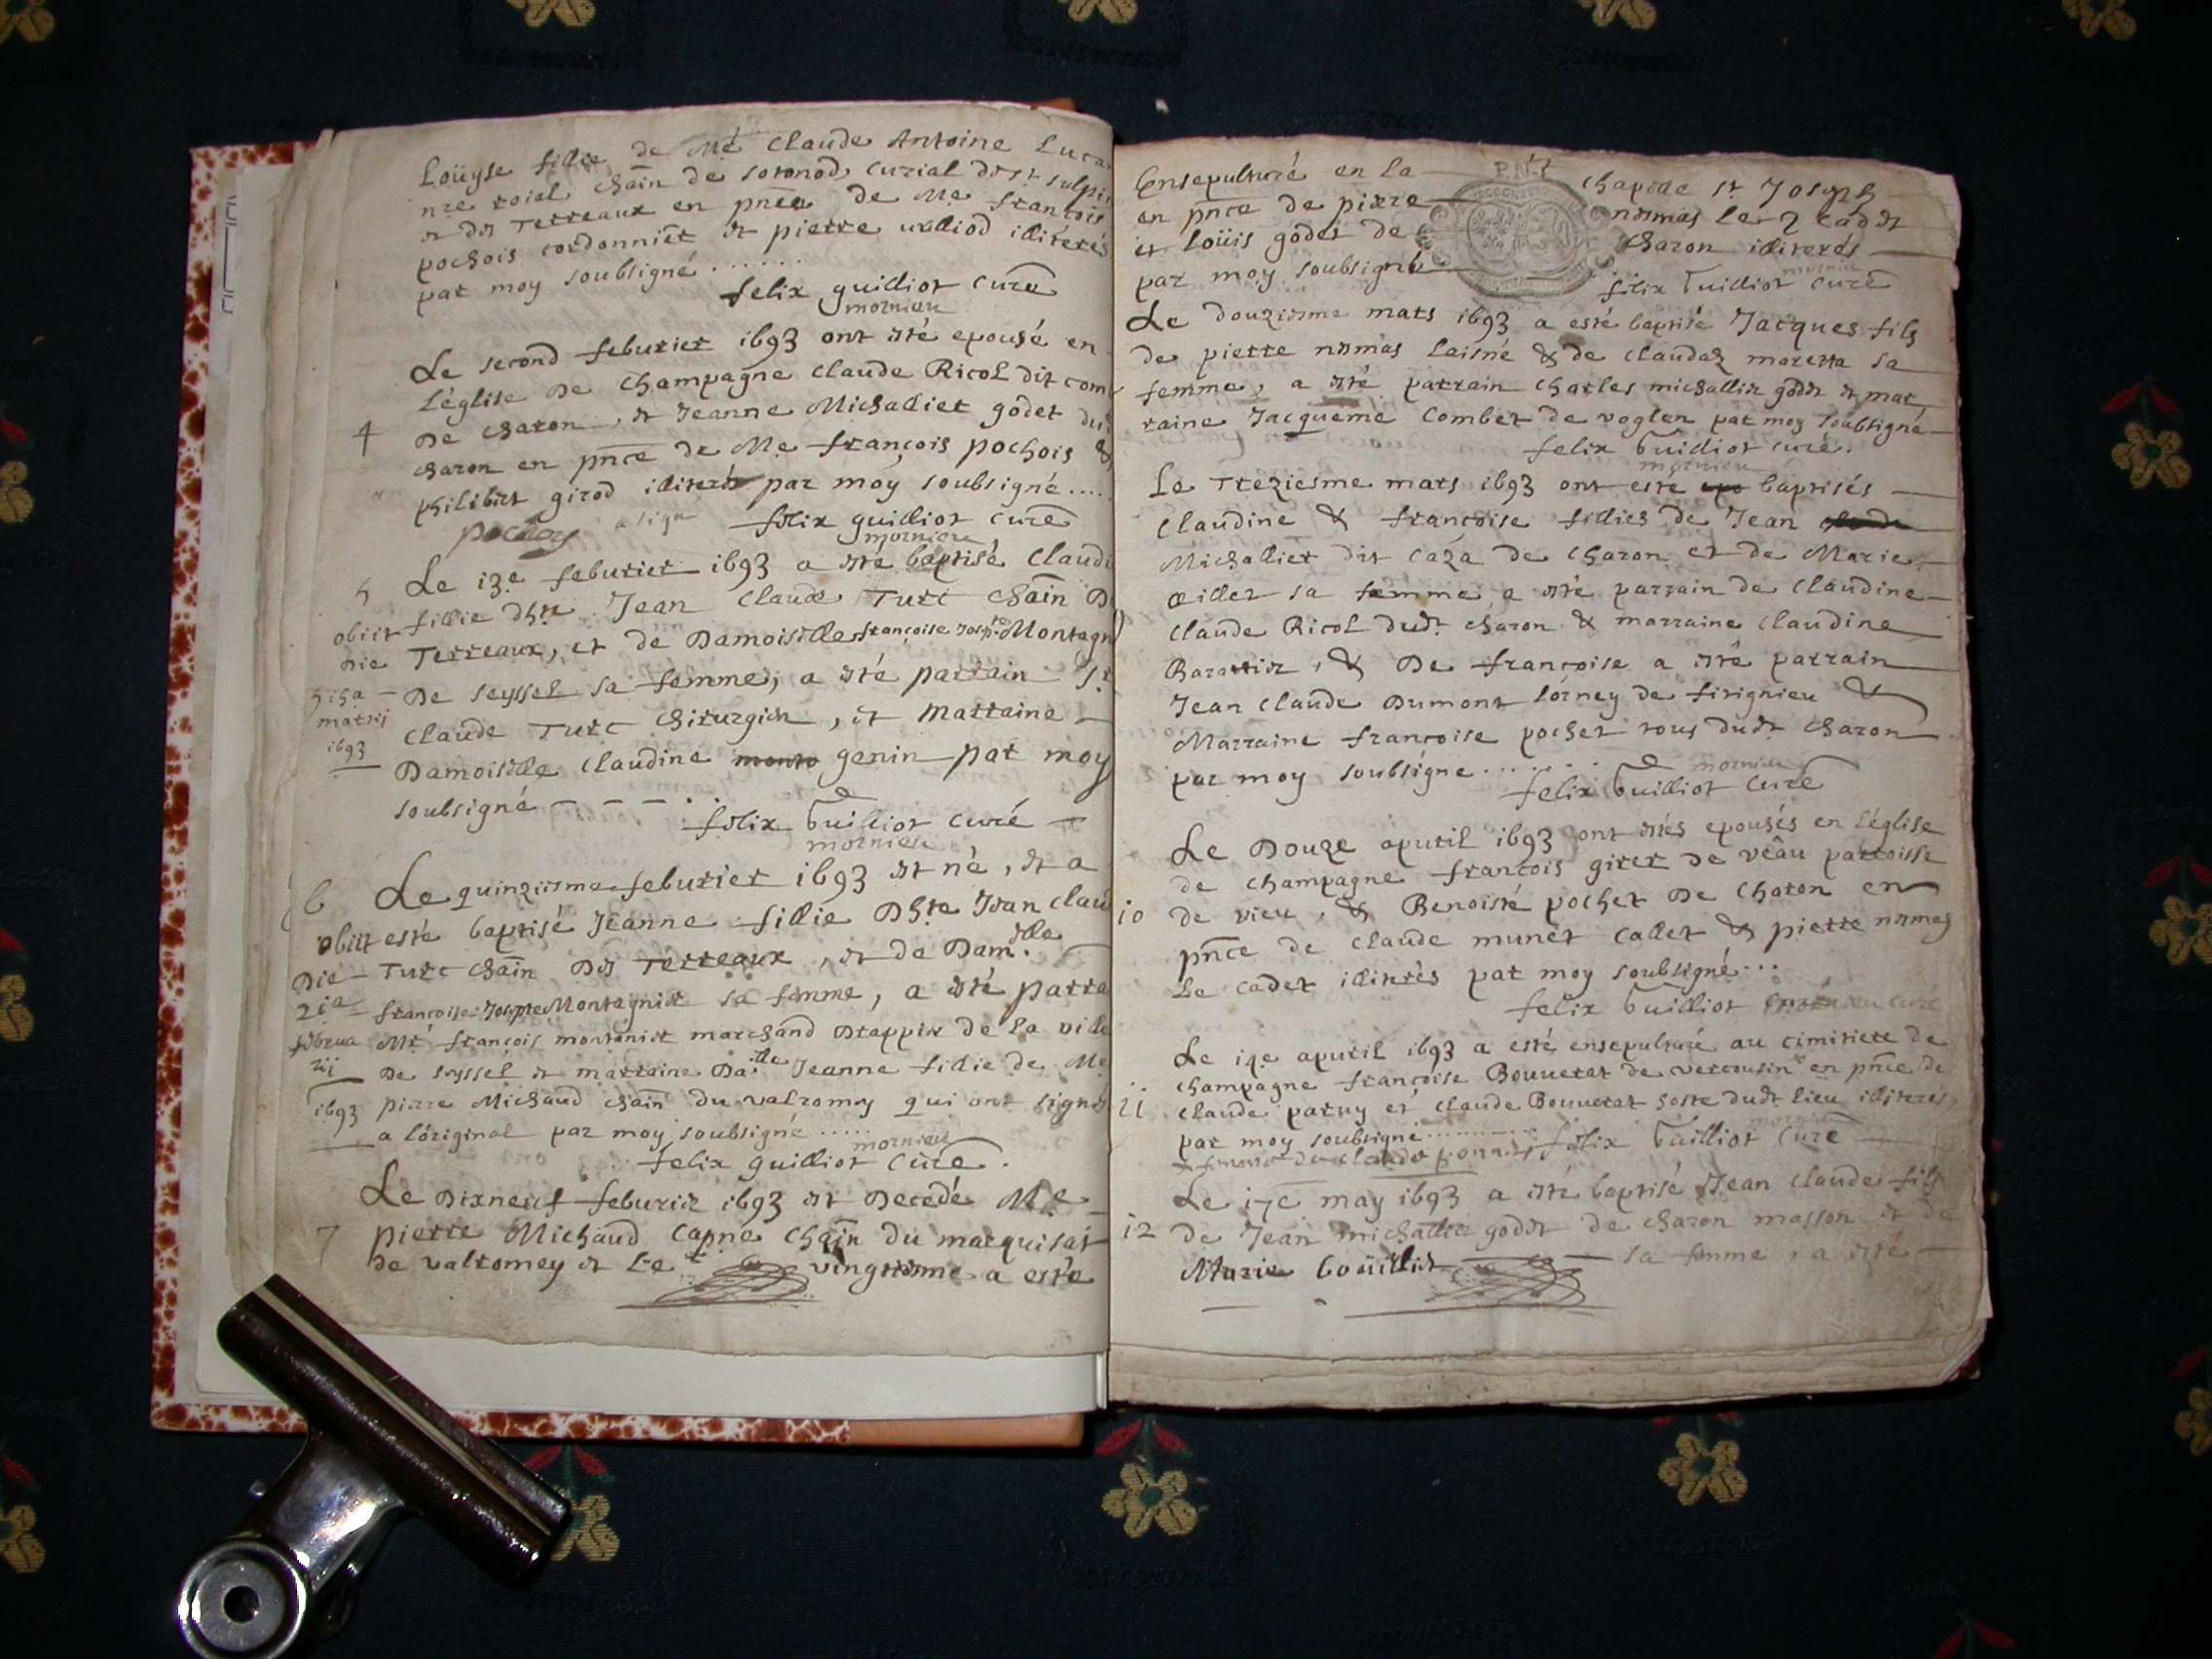 Loüyse fillie de Me Claude Antoine Luca
nre roial chãin de sotonod, curial de st sulpi
et des Terreaux en pñce de Me François
pochois cordonnier et pierre illiterés
par moy soubsigné ......
felix guilliot curé
mornieu
Le second feburier 1693 ont esté epousé en
L'églize De Champagne Claude Ricol dit com
4
De charon, et Jeanne Michalliet godet du
charon en pñce de Me françois pochois &
philibert girod illiterés par moy soubsigné .....
pochoy a signé felix guilliot curé
mornieu
5
Le 13e feburier 1693 a esté baptisé Claudi
obiit fillie Jean Claude Turc chãin D
Die Terreaux, et de Damoiselle françoise Josepte Montagn
5i5a De seyssel sa femme, a esté parrain Sr
martij
Claude Turc chirurgien, et Marraine
1693
Damoiselle Claudine monto genin par moy
soubsigné
felix Guilliot curé
mornieu
6 Le quinziesme feburier 1693 est né, et a
obiit esté baptisé Jeanne fillie Jean Claud
Die Turc chãin Des Terreaux, et de Dam.elle
21a françoise Josepte Montagnier sa femme, a esté parra
februa Mr françois montanier marchand Drappier de la ville
rij De seyssel et marraine Da.lle Jeanne fillie de Me
1693 pierre Michaud chãin du valromey qui ont signés
a l'original par moy soubsigné .....
mornieu
felix guilliot curé.
Le Dixneuf feburier 1693 est Decedé Me
7 pierre Michaud capne chãin du marquisat
de valromey et Le vingtiesme a esté
Ensepulturé en la chapelle st Joseph
en pñce de pierre nemes le cadet
et Loüis godet de Charon illiterés
par moy soubsigné
mornieu
felix Guilliot curé
Le douziesme mars 1693 a esté baptisé Jacques fils
de pierre nemes laisné & de claudaz moretta sa
femme, a esté parrain Charles michallier godet et mar
raine Jacqueme Combet de voglen par moy soubsigné
felix Guilliot curé.
mornieu
Le Treziesme mars 1693 ont esté epo baptisés
Claudine & françoise fillies de Jean
Michalliet dit caza de charon et de Marie
œillet sa femme, a esté parrain de Claudine
Claude Ricol dudt charon & marraine Claudine
Barattier, & De françoise a esté parrain
Jean Claude Dumont lorney de firignieu &
Marraine françoise pochet tous dudt charon
par moy soubsigné ......
mornieu
felix Guilliot curé
Le Douze apuril 1693 ont estés epousés en l'église
de Champagne françois giret De veãu parroisse
10 de vieu, & Benoiste pochet De Charon en
pñce de Claude munet callet & pierre nemes
Le cadet illiterés par moy soubsigné ...
felix Guilliot mornieu curé
Le 14e apuril 1693 a esté ensepulturé au cimitiere de
11 Champagne françoise Bouuerat de vercousin en pñce de
Claude patuy et Claude Bouuerat soste dudt lieu illiterés,
par moy soubsigné .......... felix Guilliot curé
femme de claude
Le 17e may 1693 a esté baptisé Jean Claude fils
12 de Jean michallier godet de charon masson et de
Marie boüillet sa femme, a esté